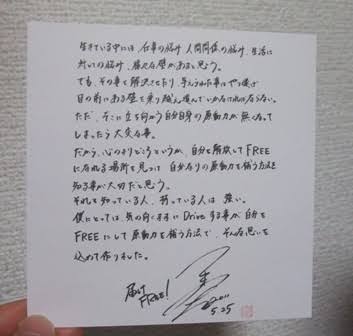 生きている中には、仕事の悩み 人間関係の悩み、生活に
対しての悩み、様々な壁があると思う。
でも、その事を解決させたり、乗り
目の前にある壁を乗り越え進んでいかなければならない。
ただ、そこに立ち向かう自分自身の原動力が無くなって
しまったら大変な事。
だから、心のよりどころというか、自分を解放してFREE
になれる場所を見つけ 自分なりの原動力を補う方法を
知る事が大切だと思う。
それを知っている人、持っている人は 強い。
僕にとっては、気の向くままに Drive する事が 自分を
FREEにして原動力を補う方法で、そんな思いを
込めて作りました。
届け
FREE!
2011
5.25